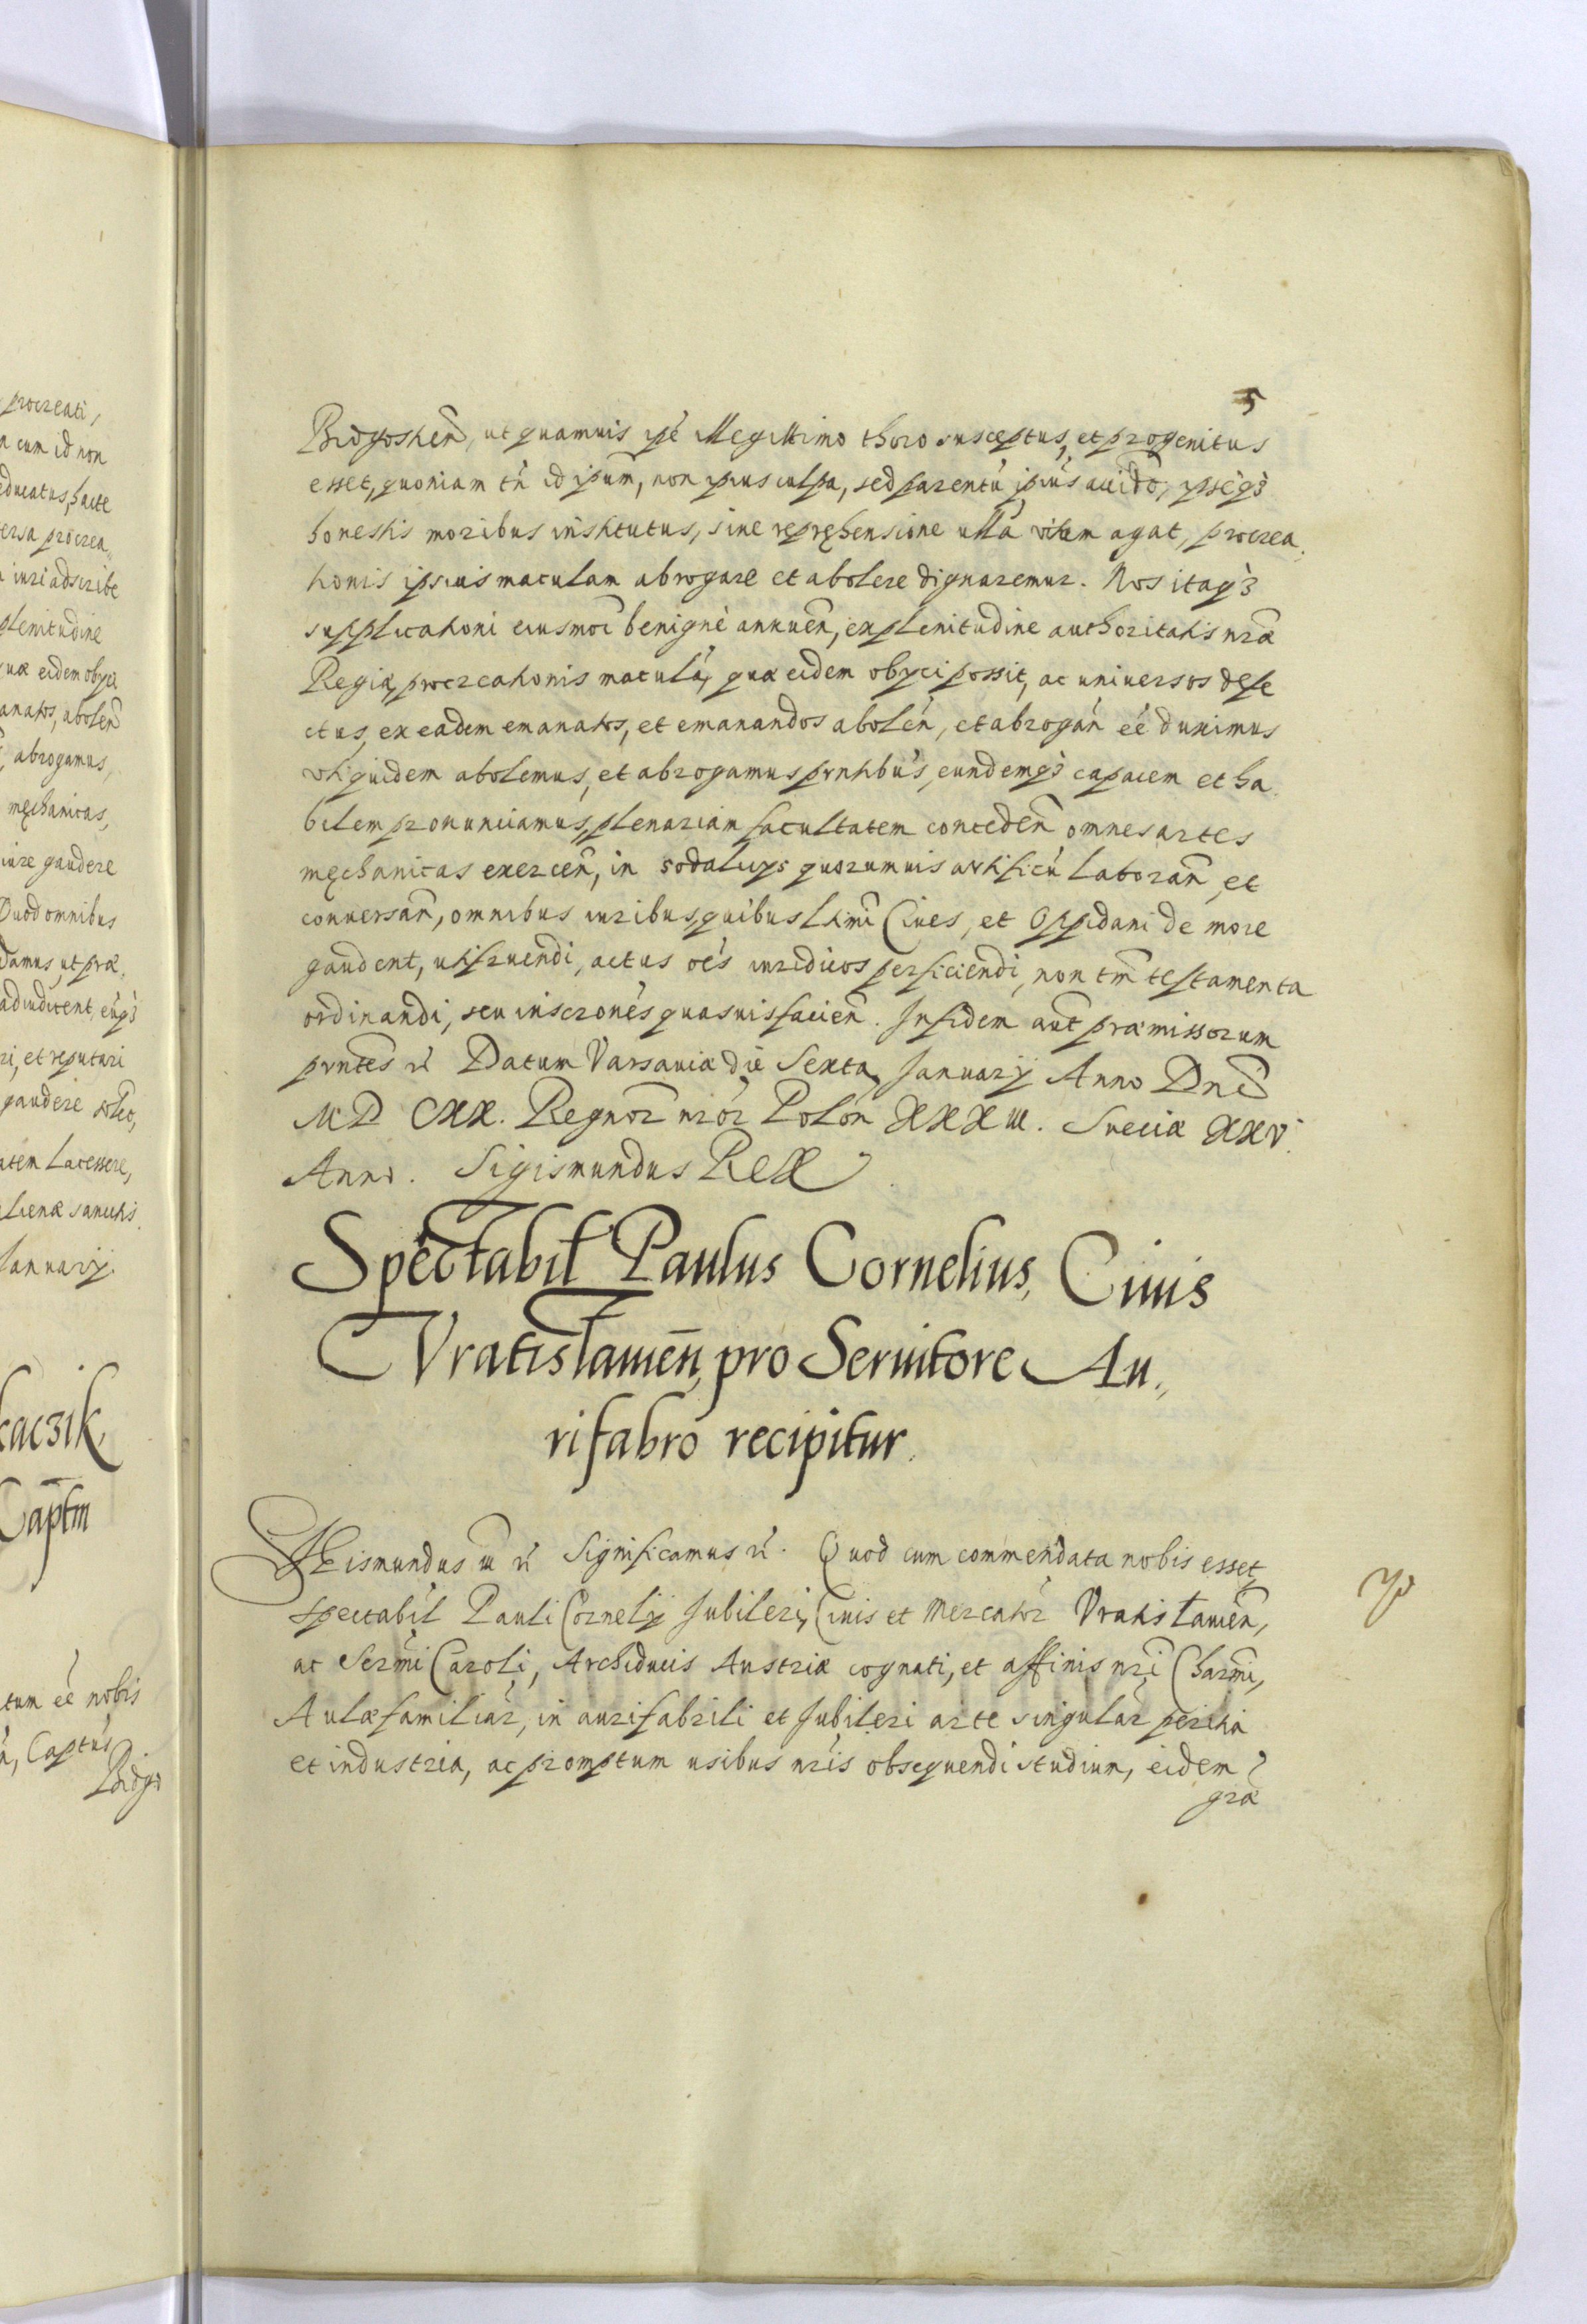 procreati,
a cum id non
educatus, hacte
ersa procrea,,
iuri adscribe
plenitudine
uæ eidem obyci
anatos, abolen̄
, abrogamus,
mechanicas,
iure gaudere
Quod omnibus
damus, ut præ,
adiudicent, eūq3
ri, et reputari
gaudere
atem lacessere,
lienæ sancitis
Januarij.
kaczik,
Cap̄tm
tum eē nobis
Captūs
Bidgo
5
Bidgostien̄, ut quamuis ip̄e illegittimo thoro susceptus, et progenitus
esset, quoniam tn̄ id ipsum̄, non ipsius culpa, sed parentū ipsīus accidō, ipseq3
honestis moribus institutus, sine repręhensione ulla vitam agat, procrea,
tionis ipsius maculam abrogare et abolere dignaremur. Nos itaq3
supplicationi eiusmoī benignè annuen̄, ex plenitudine authoritatis nræ
Regiæ, procreationis maculā, quæ eidem obyci possit, ac uniuersos defe
ctus, ex eadem emanatos, et emanandos abolēn, et abrogān eē duximus
vti quidem abolemus, et abrogamus prntibūs, eundemq3 capacem et ha,
bilem pronunciamus, plenariam facultatem conceden̄ omnes artes
mechanicas exercen̄, in sodalicys quorumuis artificū laboran̄, et
conuersan̄, omnibus iuribus, quibus ltīmi Ciues, et Oppidani de more
gaudent, utifruendi, actus oēs iuridicos perficiendi, non tm̄ testamenta
ordinandi, seu inscronēs quasuis facien̄. In fidem aut̄ præmissorum
prntes r̄ Datum Varsauiæ die Sexta, Januarij Anno Dn̄i
M D CXX. Regnor̄ nrōr Polōn XXXIII. Sueciæ XXVI.
Anno. Sigismundus Rex
Spectabil̄ Paulus Cornelius, Ciuis
Vratislauien̄, pro Seruitore Au,,
rifabro recipitur.
SIGismundus III r̄ Significamus r̄. Quod cum commendata nobis esset,
spectabīl Pauli Cornelij Jubileri, Ciuis et Mercator̄ Vratislauien̄,
ac Serm̄i Caroli, Archiducis Austriæ cognati, et affinis nrī Charm̄i,
Aulæ familiār, in aurifabrili et Jubileri arte singulār peritia
et industria, ac promptum usibus nrīs obsequendi studium, eidem
gra